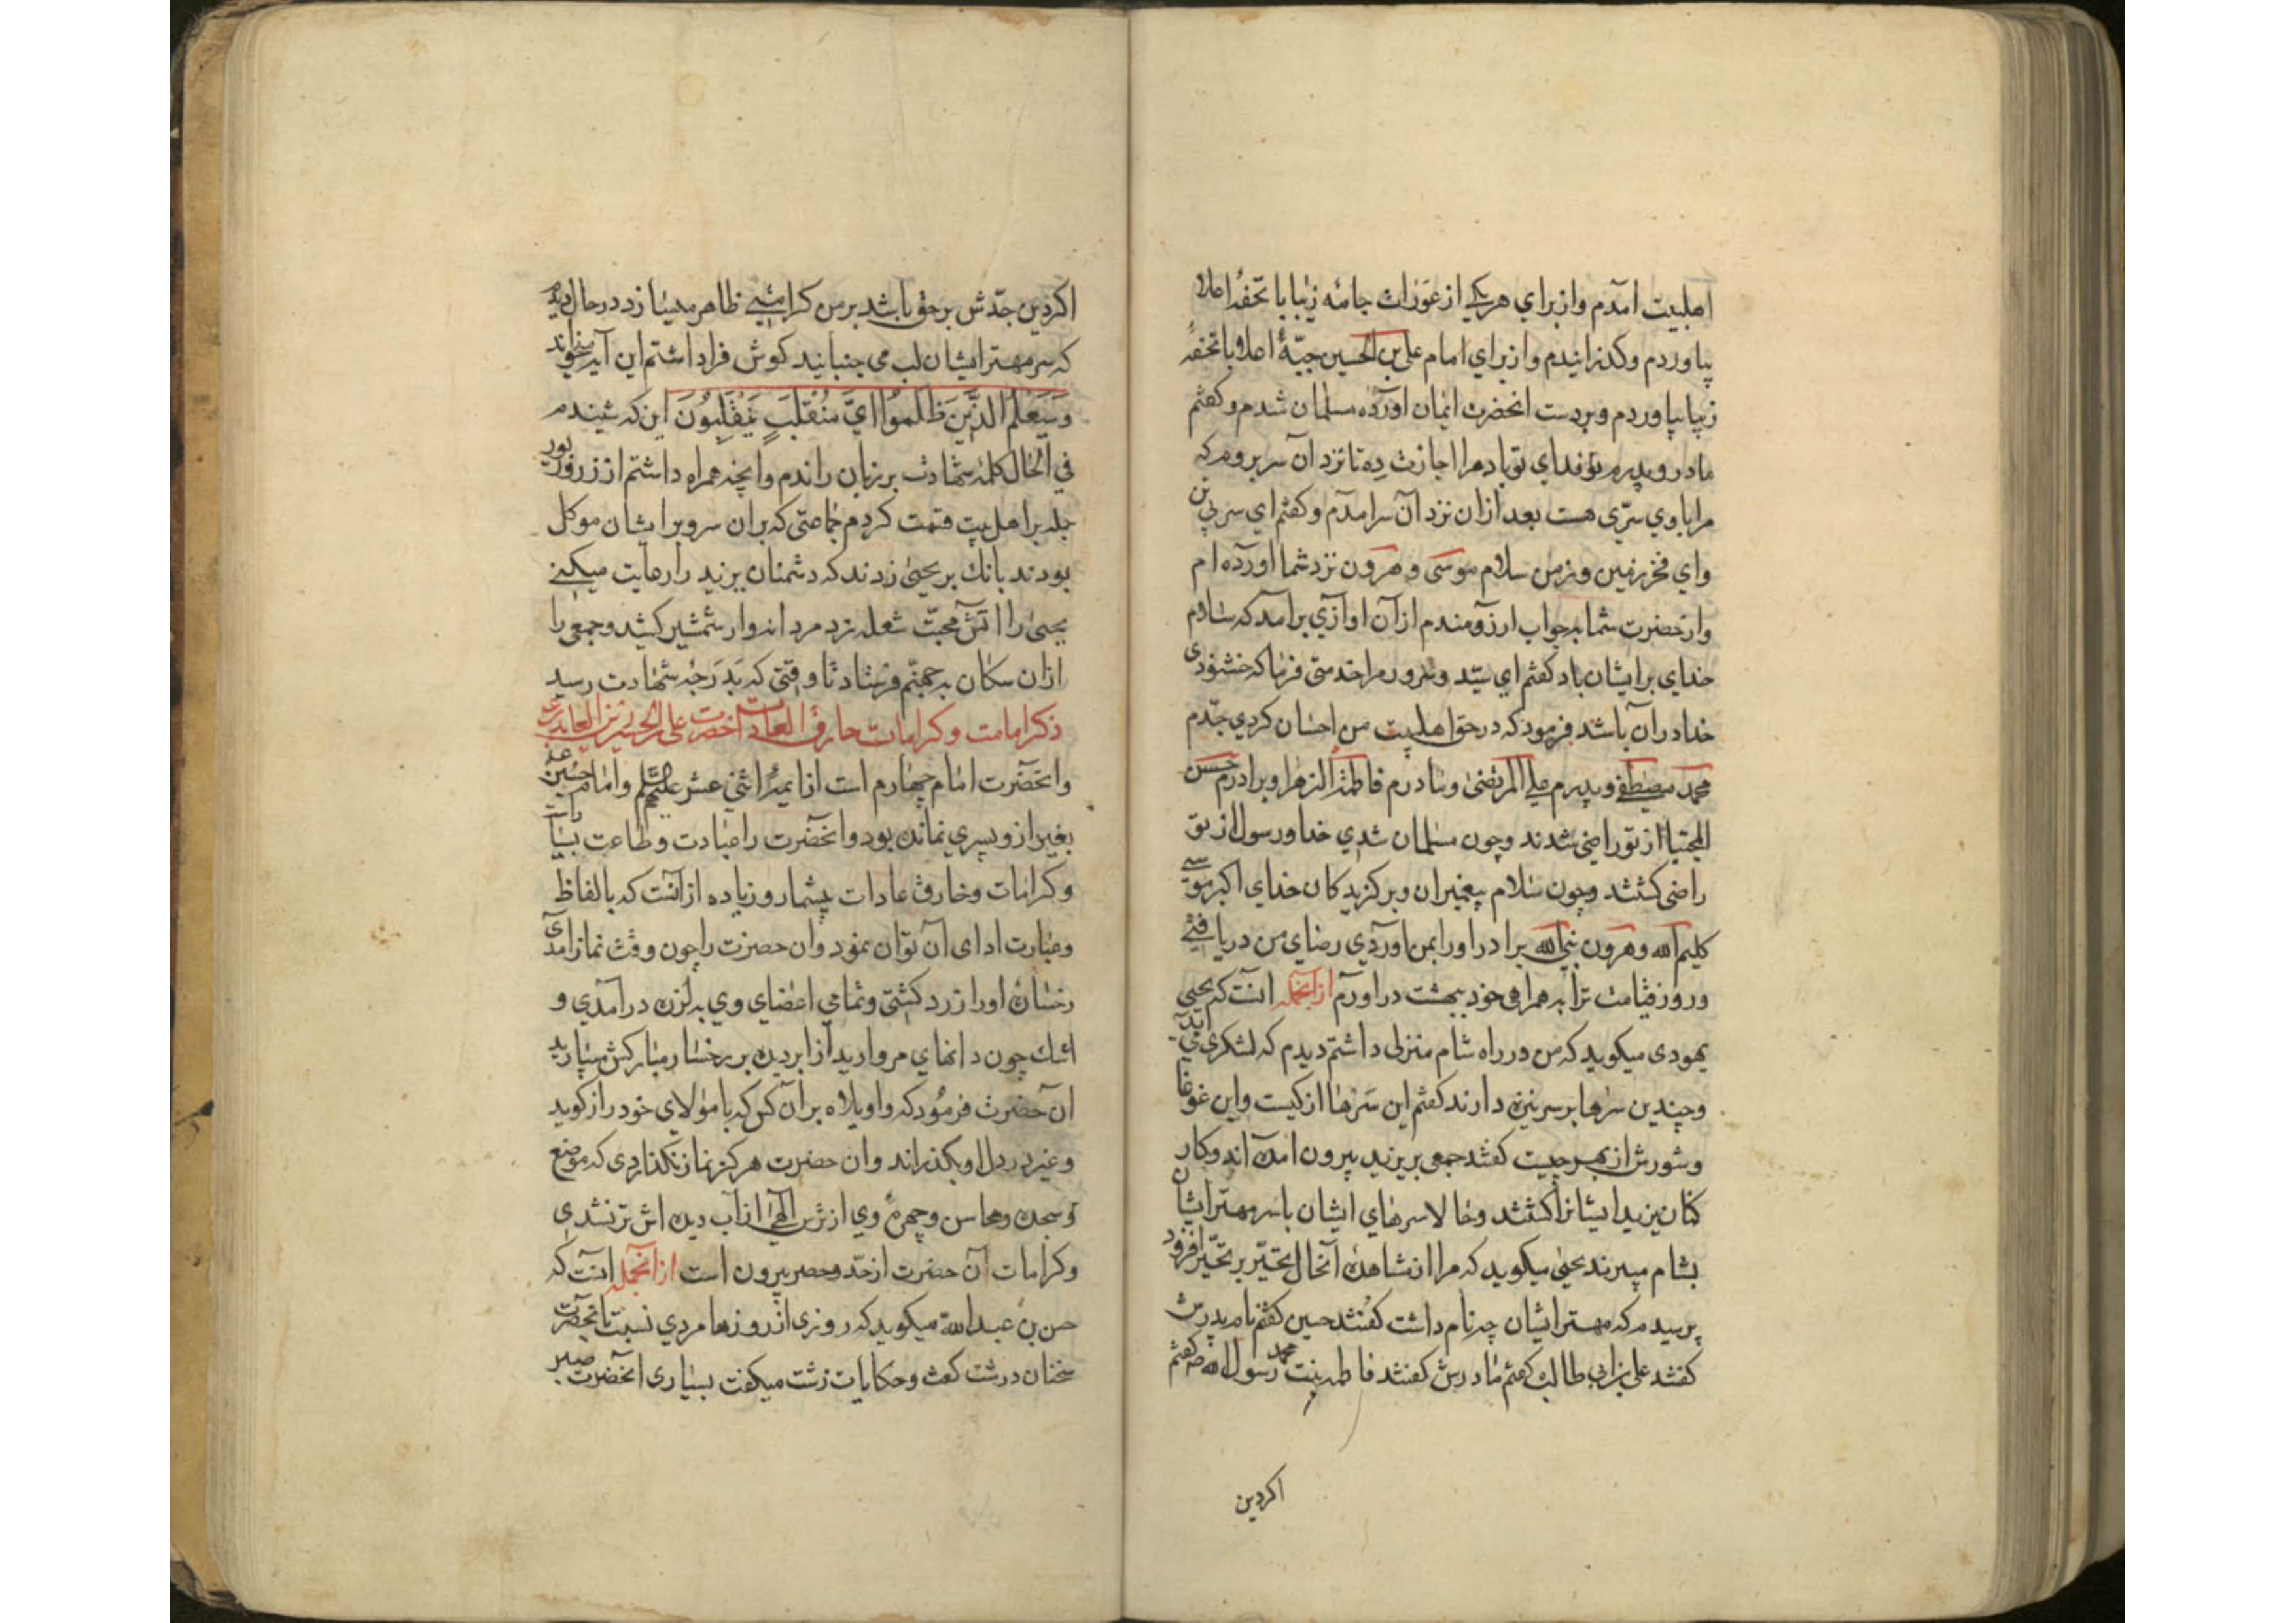 اهلبیت امدم وازبرای هریکی ازعورات جامهٔ زیبا باتحفهٔ اعلا
بیاوردم وگذرانیدم وازبرای امام علی بن الحسین جبّهٔ اعلا باتحفهٔ
زیبا بیاوردم وبردست انحضرت ایمان اورده مسلمان شدم وکفتم
مادر وپدرم توفدای توباد مرا اجازت ده تانزد آن سر بروم که
مرا باوی سرّی هست بعد ازان نزد آن سر امدم وکفتم ای سر بی تن
وای فخر زمین وزمن سلام موسی وهرون نزد شما اورده ام
واز حضرت شما به جواب ارزومندم ازآن اوازی برامد که سلام
خدای برایشان باد کفتم ای سیّد وسرور مرا خدمتی فرما که خشنودی
خدا دران باشد فرمود که درحق اهلبیت من احسان کردی جدّم
محمد مصطفی وپدرم علی المرتضی ومادرم فاطمة الزهرا وبرادرم حسن
المجتبا ازتو راضی شدند وچون مسلمان شدی خدا ورسول ازتو
راضی کشتند وچون سلام پیغمبران وبرکزیدکان خدای اکبر موسی
کلیم الله وهرون نبی الله برادر اورا بمن اوردی رضای من دریافتی
وروز قیامت ترا به همراهی خود ببهشت دراورم ازآنجمله انست که یحیی
یهودی میکوید که من درراه شام منزلی داشتم دیدم که لشکری می اید
وچندین سرها برسر نیزه دارند کفتم این سرها ازکیست واین غوغا
وشورش ازبهر چیست کفتند جمعی بریزید بیرون امده اند وکار
کنان یزید ایشانرا کشتند وحالا سرهای ایشان باسر مهتر ایشان
بشام میبرند یحیی میکوید که مرا ازمشاهده آنحال تحیّر برتحیّر افزود
پرسیدم که مهتر ایشان چه نام داشت کفتند حسین کفتم نام پدرش
کفتند علی بن ابی طالب کفتم مادرش کفتند فاطمه بنت محمد رسول الله ص کفتم
اکردین
اکردین جدّش برحق باشد برمن کرامتی ظاهر میسازد درحال دیدم
که سر مهتر ایشان لب می جنبانید کوش فرا داشتم این آیه میخواند
وَسَیَعْلَمُ الَّذِینَ ظَلَمُوا اَیَّ مُنْقَلَبٍ یَنْقَلِبُونَ این که شنیدم
فی الحال کلمهٔ شهادت برزبان راندم وانچه همراه داشتم از زر وزیور
جمله براهل بیت قسمت کردم جماعتی که بران سر وبر ایشان موکل
بودند بانک بریحیی زدند که دشمنان یزید را رعایت میکنی
یحیی را اتش محبّت شعله زد مردانه وار شمشیر کشید وجمعی را
ازان سکان به جهنّم فرستاد تا وقتی که بدرجهٔ شهادت رسید
ذکر امامت وکرامات خارق العادات حضرت علی بن الحسین زین العابدین
وانحضرت امام چهارم است از ایمهٔ اثنی عشر علیهم السلم وامام حسین
بغیر ازو پسری نمانده بود وانحضرت را عبادت وطاعت بسیار است
وکرامات وخارق عادات بیشمار وزیاده ازانست که بالفاظ
وعبارت ادای آن توان نمود وان حضرت را چون وقت نماز آمدی
رخسارهٔ او را زرد کشتی وتمامی اعضای وی به لرزه درآمدی و
اشک چون دانهای مروارید از ابر دیده بر رخسار مبارکش میبارید
ان حضرت فرمود که واویلاه بران کس که بامولای خود راز کوید
وغیر دردل او بکذراند وان حضرت هرکز نماز نکذاردی که موضع
سجده ومحاسن وچهرهٔ وی ازترس الهی ازآب دیده اش ترنشدی
وکرامات ان حضرت ازحدّ وحصر بیرون است ازآنجمله انست که
حسن بن عبدالله میکوید که روزی ازروزها مردی نسبت باآنحضرت
سخنان درشت کفت وحکایات زشت میکفت بسیاری انحضرت صبر